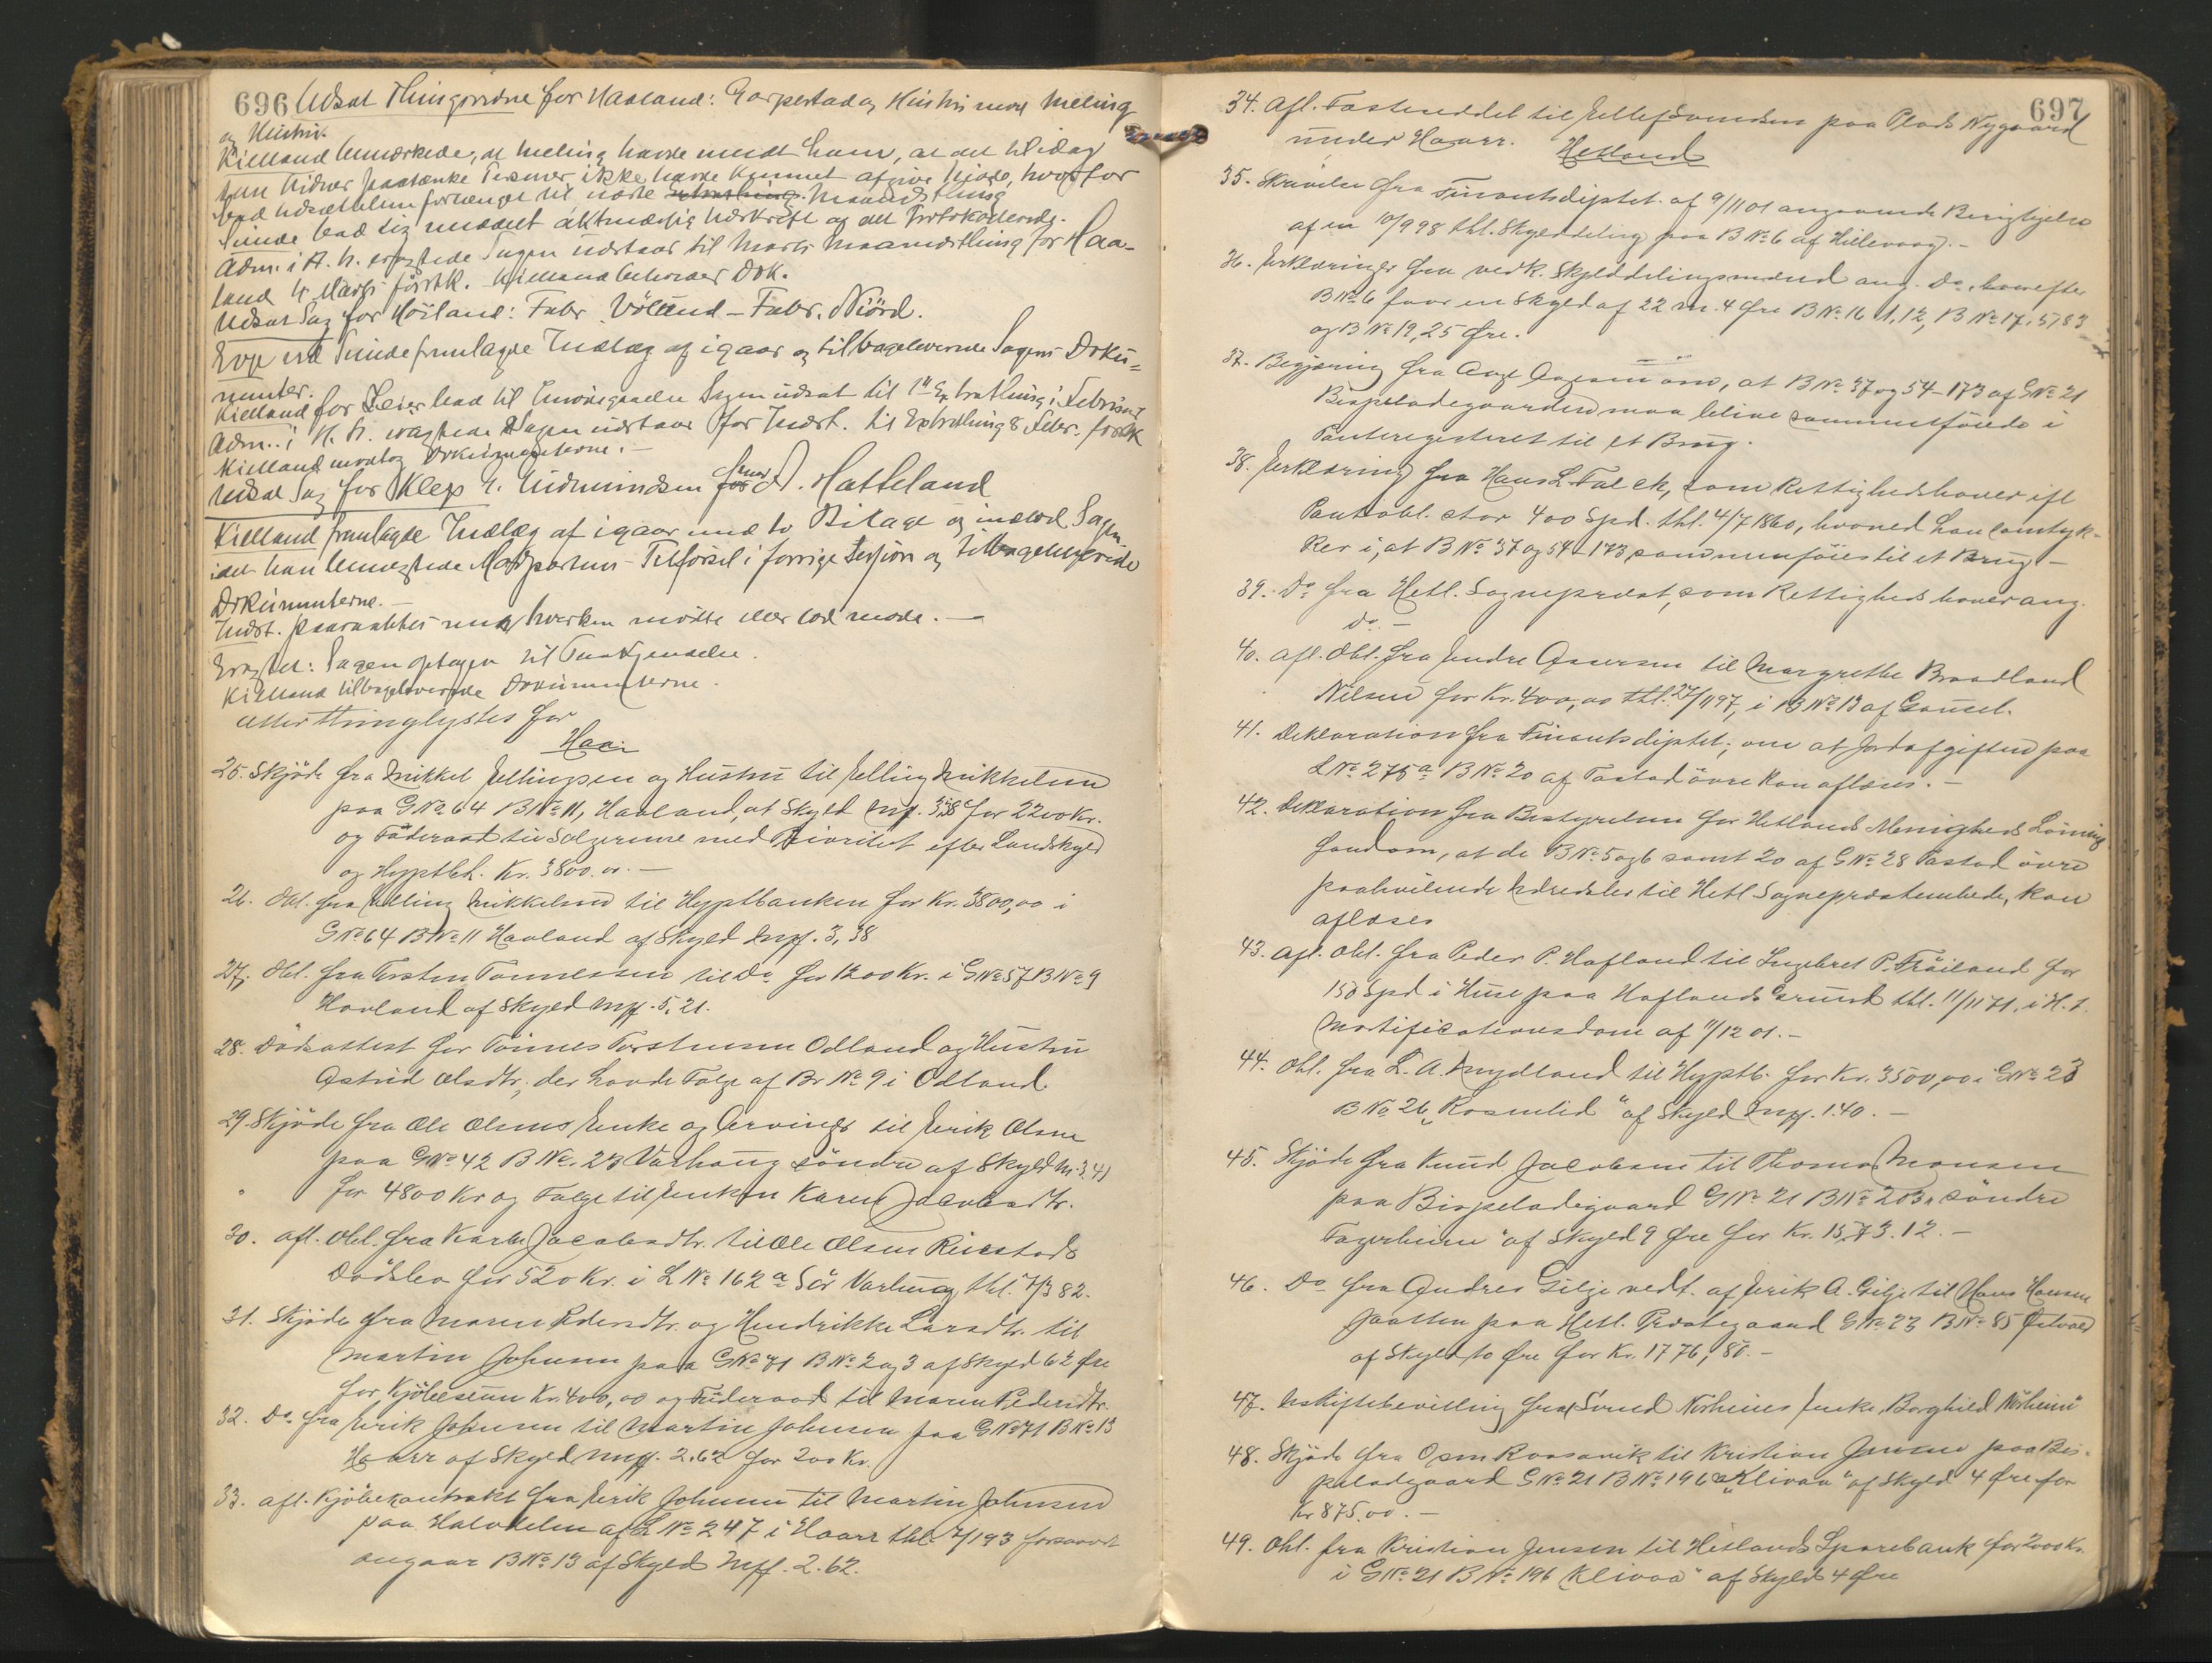 696 Udsat Thingvidne for Haaland: Garpestad og Hustru mod Meling
og Hustru.
Kielland bemærkede, at Meling havde meddt ham, at det til idag
Vidner paatænkte ikke havde kunnet afgive Møde, hvorfor
bad Udsættelsen forlænget til næste Maanedsthing
Sunde bad sig meddelt aktmæssig Udskrift af det Protokollerede.
Adm. i H. N. eragtede Sagen udstaar til Marts Maanedsthing for Haa-
land 4 Marts førstk. Kielland beholder Dok.
Udsat Sag for Høiland: Fabr. Vølund - Fabr. Njörd.
Sunde fremlagde Indlæg af igaar og tilbageleverede Sagens Doku-
menter.
Kielland for bad til Imødegaaelse Sagen udsat til 1ste Extrathing i Februar
Adm. i H. N. eragtede Sagen udstaar for Indst. til Extrathing 8 Febr. førstk
Kielland modtog Dokumenterne. -
Udsat Sag for Klep E. Gudmundsen mod A. Hatteland
Kielland fremlagde Indlæg af igaar med to Bilage og indlod Sagen
idet han benægtede Modpartens Tilførsel i forrige Session og tilbageleverede
Dokumenterne. -
Indst. paaraabtes men hverken mødte eller lod møde. -
Eragtet: Sagen optagen til Paakjendelse.
Kielland tilbageleverede Dokumenterne.
Atter thinglystes for
Haa:
25. Skjøde fra Mikkel Jellingsen og Hustru til Jelling Mikkelsen
paa GNo 64 BNo 11, Haaland, af Skyld Mrk. 3,38 for 2200 Kr.
og Föderaad til Sælgerne med Prioritet efter Landskyld
og Hyptbk. Kr. 3800.00. -
26. Obl. fra Jelling Mikkelsen til Hyptbanken for Kr. 3800,00 i
GNo 64 BNo 11 Haaland af Skyld Mrk. 3,38
27. Obl. fra Torsten Tønnessen til Do for 1200 Kr. i GNo 57 BNo 9
Haaland af Skyld Mrk. 5,21.
28. Dødsattest for Tönnes Torstensen Odland og Hustru
Astrid Olsdtr, der havde Folge af Br No 9 i Odland.
29. Skjøde fra Ole Olsens Enke og Arvinger til Erik Olsen
paa GNo 42 BNo. 23 Varhaug söndre af Skyld M. 3,41
for 4800 Kr og Folge til Enken Karen Jacobsdtr.
30. Afl. Obl. fra Karen Jacobsdtr. til Ole Olsen Riestads
Dødsbo for 520 Kr. i LNo 162 a Sör Varhaug thl. 7/3 82.
31. Skjøde fra Maren Pedersdtr. og Hendrikke Larsdtr. til
Martin Johnsen paa GNo 71 BNo 2 og 3 af Skyld 62 Øre
for Kjöbesum Kr. 400,00 og Föderaad til Maren Pedersdtr.
32. Do fra Erik Johnsen til Martin Johnsen paa GNo 71 BNo 13
Haarr af Skyld Mrk. 2.62 for 200 Kr.
33. Afl. Kjöbekontrakt fra Erik Johnsen til Martin Johnsen
paa Halvdelen af LNo 247 i Haarr thl. 7/1 93 forsaavdt
angaar BNo 13 af Skyld Mrk. 2.62.
697
34. Afl. Fasteseddel til Ellef Svendsen paa Plads Nygaard
under Haarr.
Hetland
35. Skrivelse fra Finantsdeptet. af 9/11 01 angaaende Berigtigelse
af en 10/9 98 thl. Skylddeling paa BNo 6 af Hillevaag. -
36. Erklæringer fra vedk. Skylddelingsmænd ang. Do, hvorefter
BNo 6 faar en Skyld af 22 m. 4 Øre BNo 16 1,12, BNo 17, 5,83
og BNo 19, 25 Øre.
37. Begjæring fra Aage om, at BNo 37 og 54-173 af GNo 21
Bispeladegaarden maa blive sammenföiede i
Panteregisteret til et Brug.
38. Erklæring fra Hans L. Falck, som Rettighedshaver ifl
Pantobl. stor 400 Spd. thl. 4/7 1860, hvorved han samtyk-
ker i, at BNo 37 og 54-173 sammenföies til et Brug -
39. Do fra Hetl. Sogneprest, som Rettighedshaver ang.
do. -
40. Afl. Obl. fra Endre Assersen til Margrethe Braadland
Nilsen for Kr. 400,00 thl. 27/11 97, i BNo 13 af Gausel.
41. Deklaration fra Finantsdeptet, om at Jordafgiften paa
LNo 275 a BNo 20 af Tastad övre kan aflöses. -
42. Deklaration fra Bestyrelsen for Hetlands Menigheds Lönnings
fond om, at de BNo 5 og 6 samt 20 af GNo 28 Tastad övre
paahvilende Ydelser til Hetl. Sogneprestembede, kan
aflöses
43. Afl. Obl. fra Peder P. Hafland til Ingebret P. Fröiland for
150 Spd i Huse paa Haflands Grund thl. 11/11 71, i H. t.
Mortificationsdom af 11/12 01. -
44. Obl. fra L. A. Mydland til Hyptb. for Kr. 3500,00 i GNo 23
BNo 26 „Rosenlid" af Skyld Mrk. 1.40. -
45. Skjøde fra Knud Jacobsen til Thomas Monsen
paa Bispeladegaard GNo 21 BNo 203 „söndre
Fagerheim" af Skyld 9 Øre for Kr. 1573.12. -
46. Do fra Andres Gilje vedt. af Erik A. Gilje til Hans Hansen
Jaatten paa Hetl. Prestegaard GNo 23 BNo 85
af Skyld 10 Øre for Kr. 1776,80. -
47. Uskiftebevilling fra Svend Nörheims Enke, Borghild Nörheim
48. Skjøde fra Osm Roosavik til Kristian Jensen paa Bis-
peladegaard GNo 21 BNo 196 „Klivaa" af Skyld 4 Øre for
Kr 875.00. -
49. Obl. fra Kristian Jensen til Hetlands Sparebank for 2000 Kr.
i GNo 21 BNo 196 „Klivaa" af Skyld 4 Øre